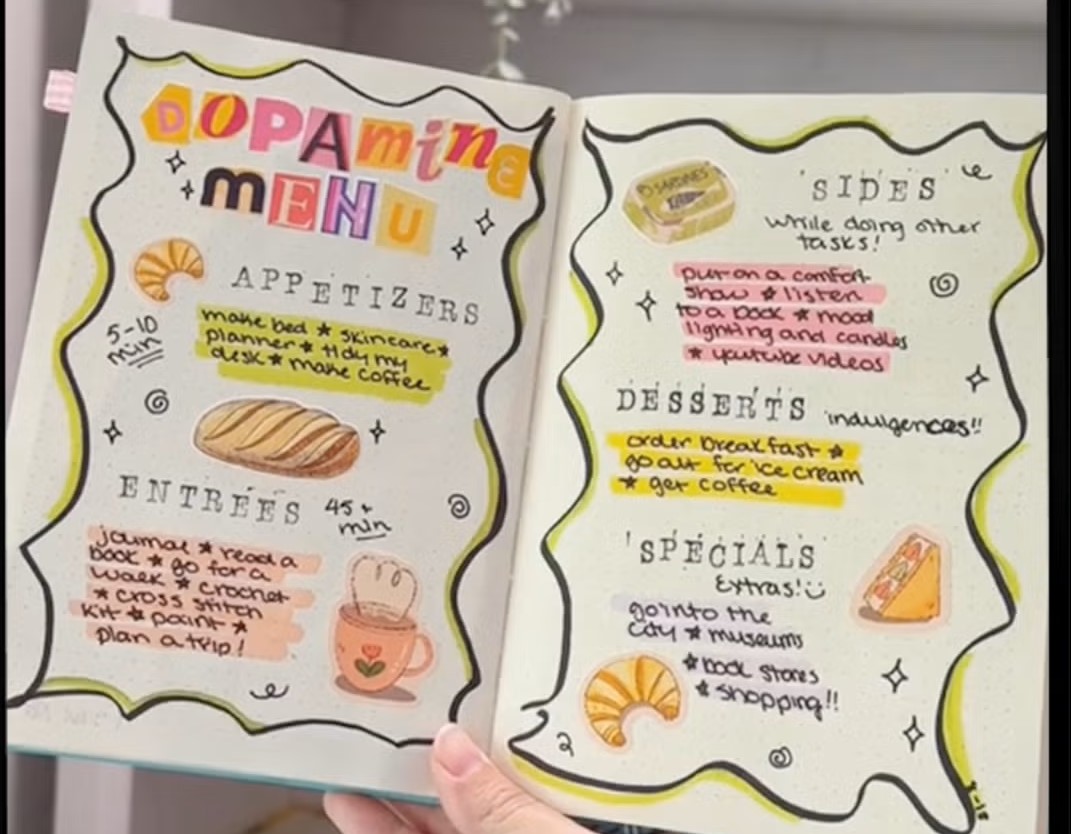 DOPAminE
mENU
APPETIZERS
5-10
min
make bed ★ skincare ★
planner ★ tidy my
desk ★ make coffee
ENTREES
45+
min
journal ★ read a
book ★ go for a
walk ★ crochet
★ cross stitch
kit ★ paint ★
plan a trip!
SARDINES
'SIDES'
while doing other
tasks!
put on a comfort
show ★ listen
to a book ★ mood
lighting and candles
★ youtube videos
DESSERTS
indulgences!!
order breakfast ★
go out for ice cream
★ get coffee
'SPECIALS
Extras!
go into the
city ★ museums
★ book stores
★ shopping!!